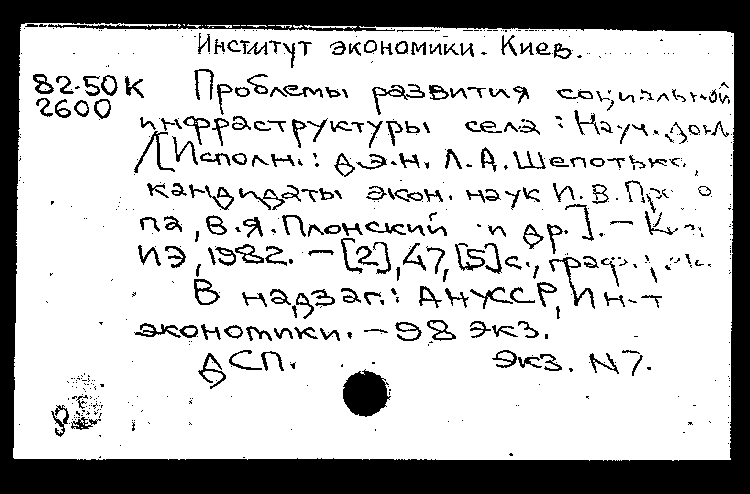 Институт экономики. Киев.
82-50К Проблемы развития социальной
2600 инфраструктуры села: Науч. докл.
/[Исполн.: д.э.н. Л.А. Шепотько,
кандидаты экон. наук И.В.
па, В.Я. Плонский и др.]. – Киев:
ИЭ, 1982. – [2], 47, [5] с., граф.;
В надзаг.: АН УССР, Ин-т
экономики. – 98 экз.
ДСП. Экз. N 7.
8